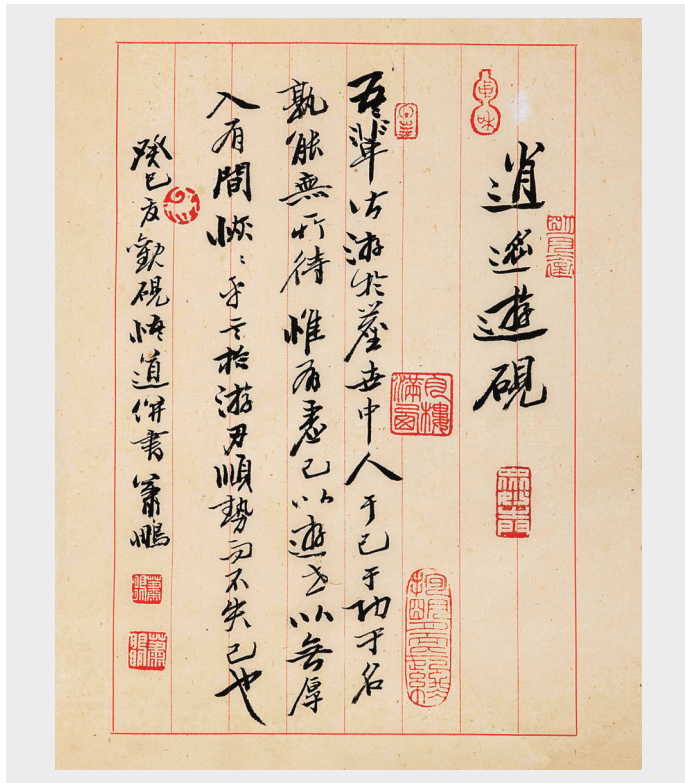 逍遙遊硯
吾輩皆游於塵世中人于己于功于名
孰能無所待惟有虛己以遊世以無厚
入有間恢恢乎言於游刃順勢而不失己也
癸巳友觀硯悟道併書蕭鵬